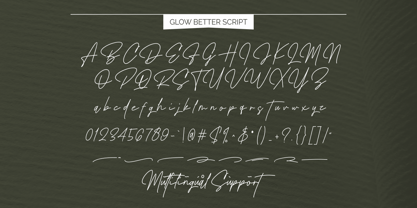 GLOW BETTER SCRIPT
A B C D E F G H I J K L M N
O P Q R S T U V W X Y Z
a b c d e f g h i j k l m n o p q r s t u v w x y z
0123456789
Multilingual Support